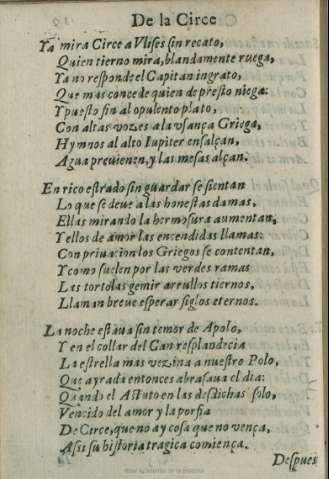 De la Circe
Ya mira Circe a Vlises sin recato,
Quien tierno mira, blandamente ruega,
Ya no responde el Capitan ingrato,
Que mas concede quien de presto niega:
Y puesto fin al opulento plato,
Con altas vozes a la vsança Griega,
Hymnos al alto Iupiter ensalçan,
Agua preuienen, y las mesas alçan.
En rico estrado sin guardar se sientan
Lo que se deue a las honestas damas,
Ellas mirando la hermosura aumentan,
Y ellos de amor las encendidas llamas:
Con priuacion los Griegos se contentan,
Y como suelen por las verdes ramas
Las tortolas gemir arrullos tiernos,
Llaman breue esperar siglos eternos.
La noche estaua sin temor de Apolo,
Y en el collar del Can resplandecia
La estrella mas vezina a nuestro Polo,
Que ayrada entonces abrasaua el dia:
Quando el Astuto en las desdichas solo,
Vencido del amor y la porfia
De Circe, que no ay cosa que no vença,
Assi su historia tragica comiença.
Despues